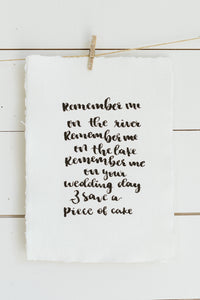 Remember me
on the river
Remember me
on the lake
Remember me
on your
wedding day
& save a
piece of cake